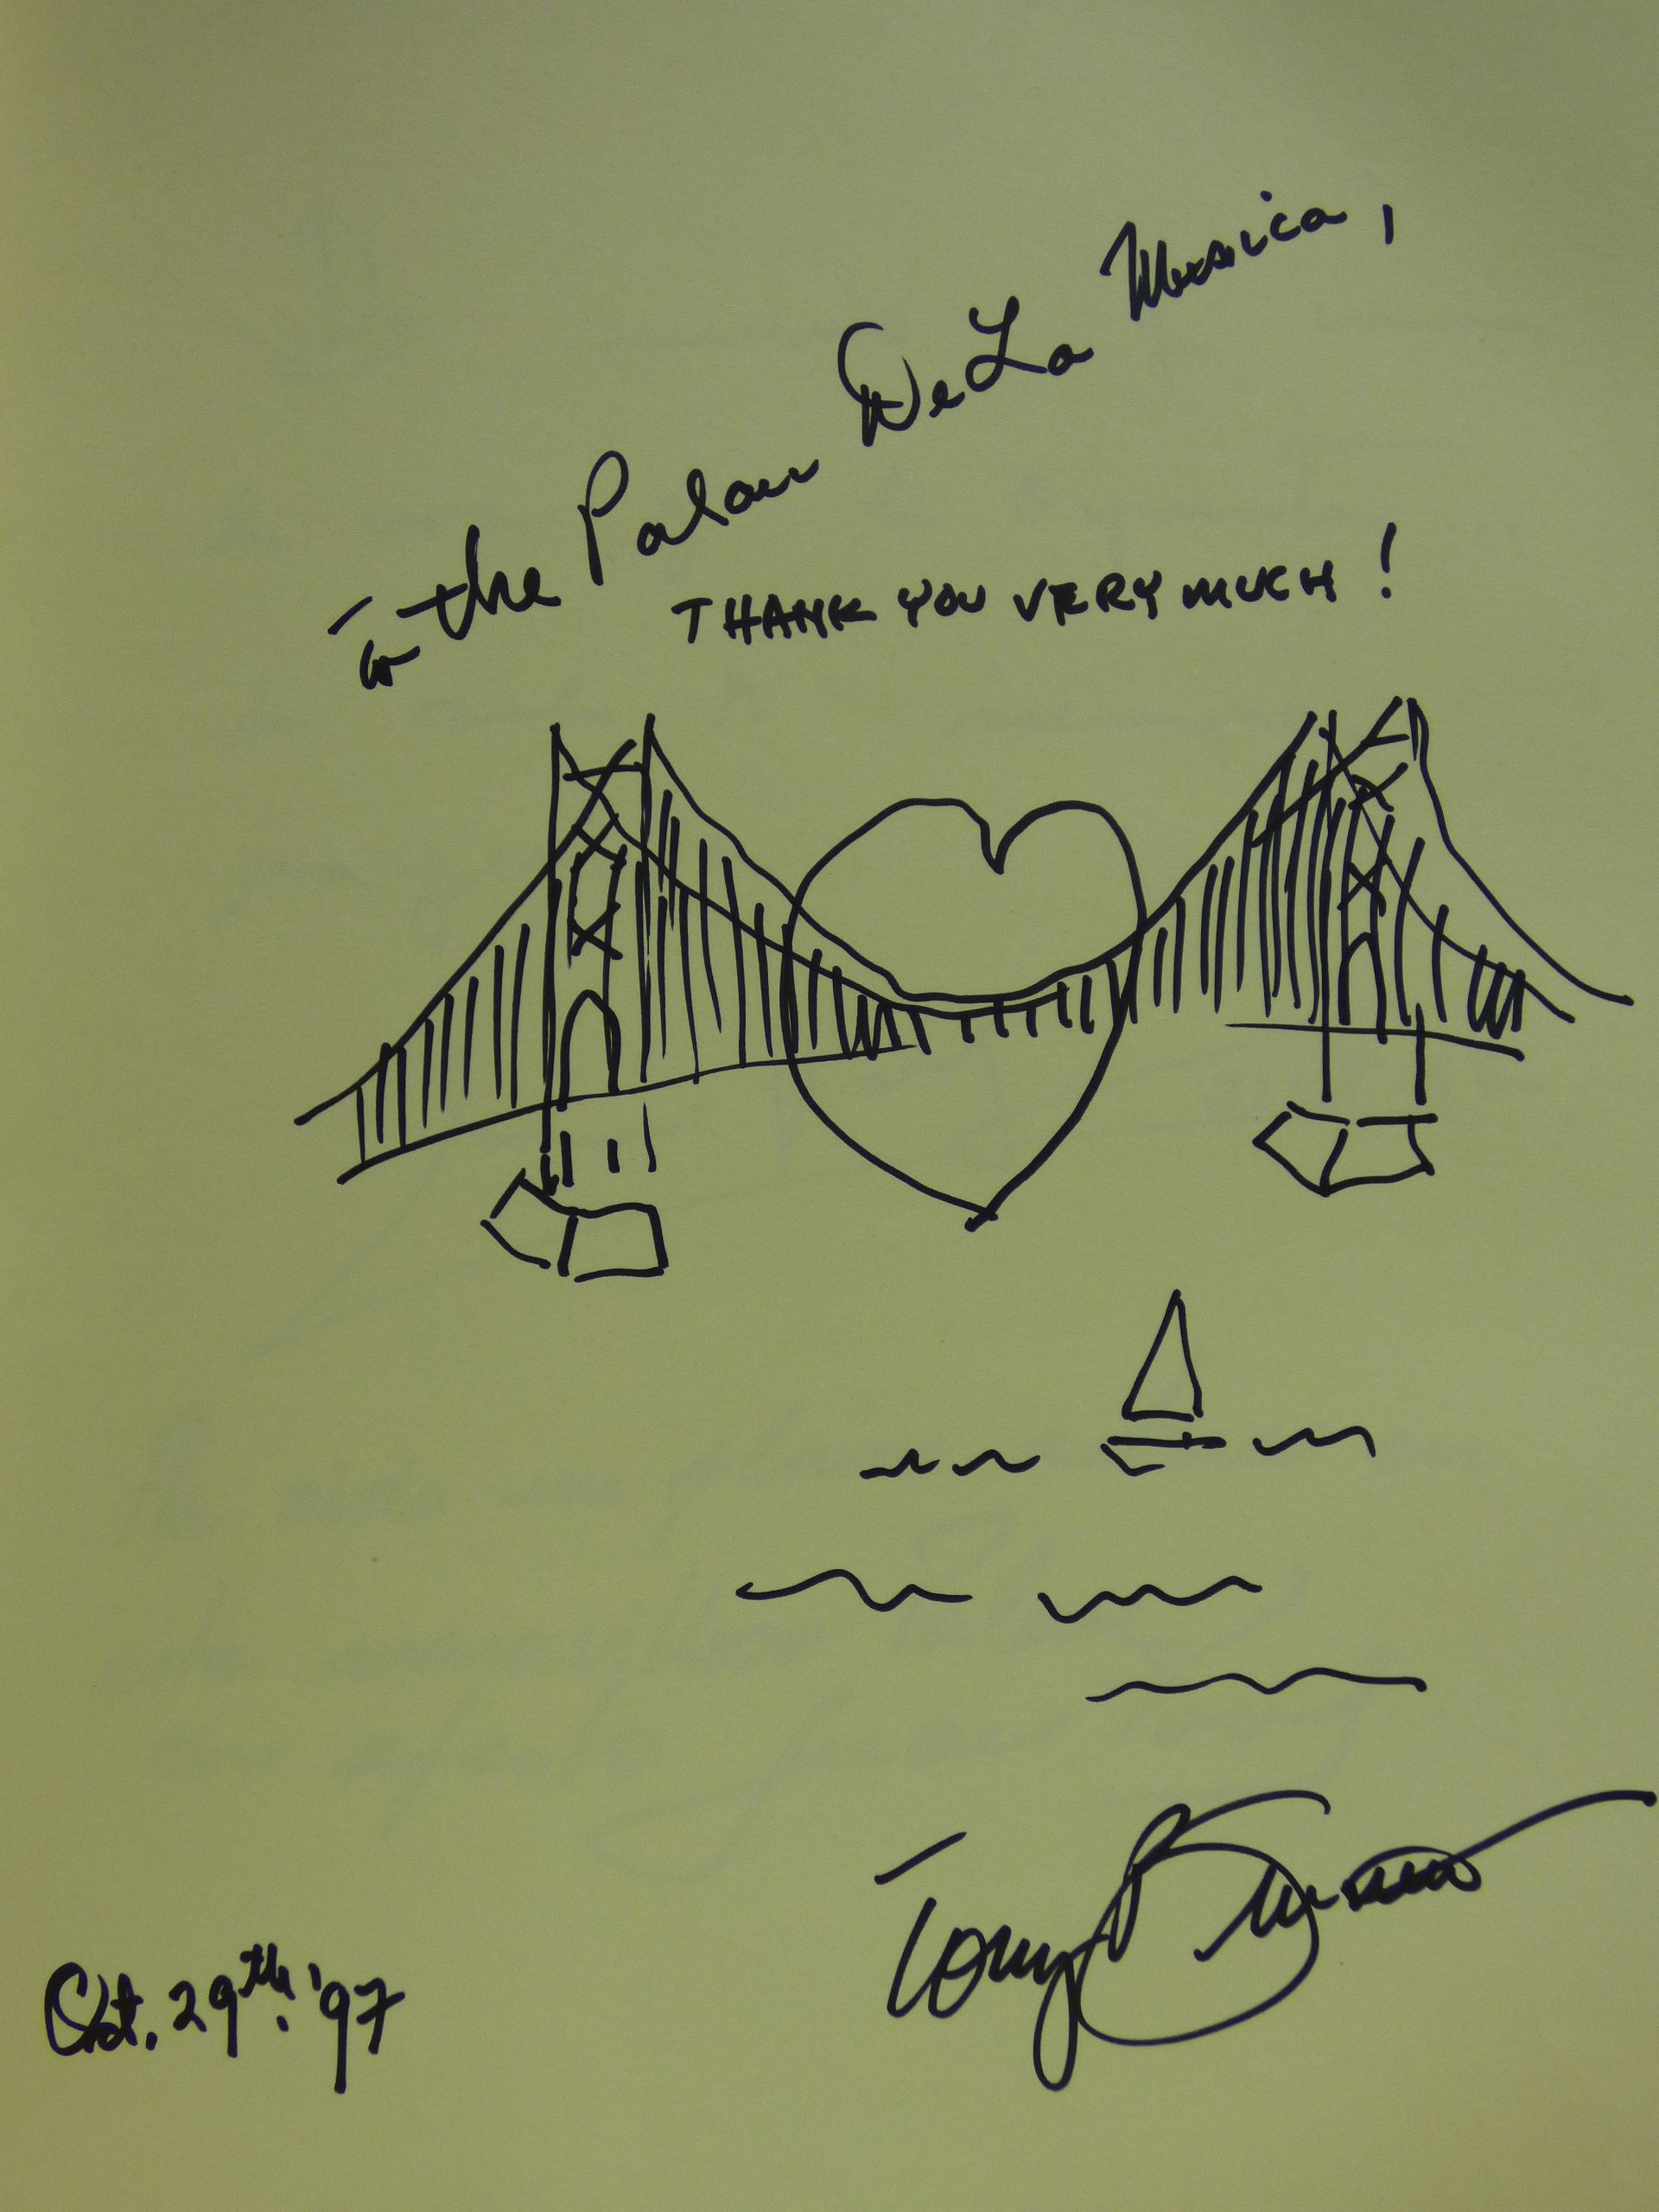 To the Palau De La Musica,
THANK YOU VERY MUCH!
Tony Bennett
Oct. 29th. '97